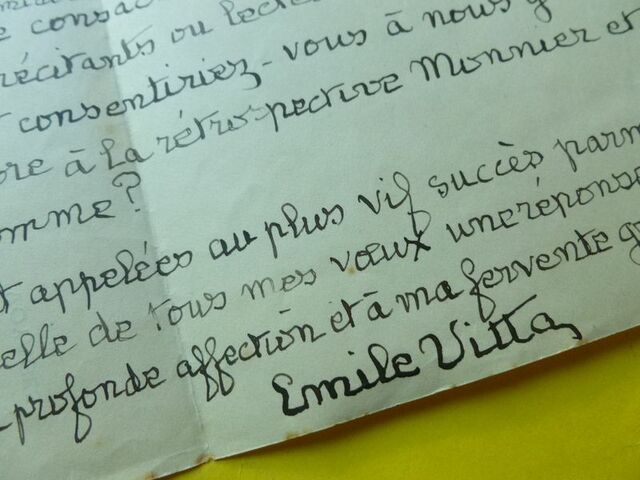 e consac
récitants ou lecte
consentiriez-vous à nous
à la rétrospective Monnier et
omme?
t appelées au plus vif succès parm
elle de tous mes vœux une réponse
profonde affection et à ma fervente g
Emile Vitta